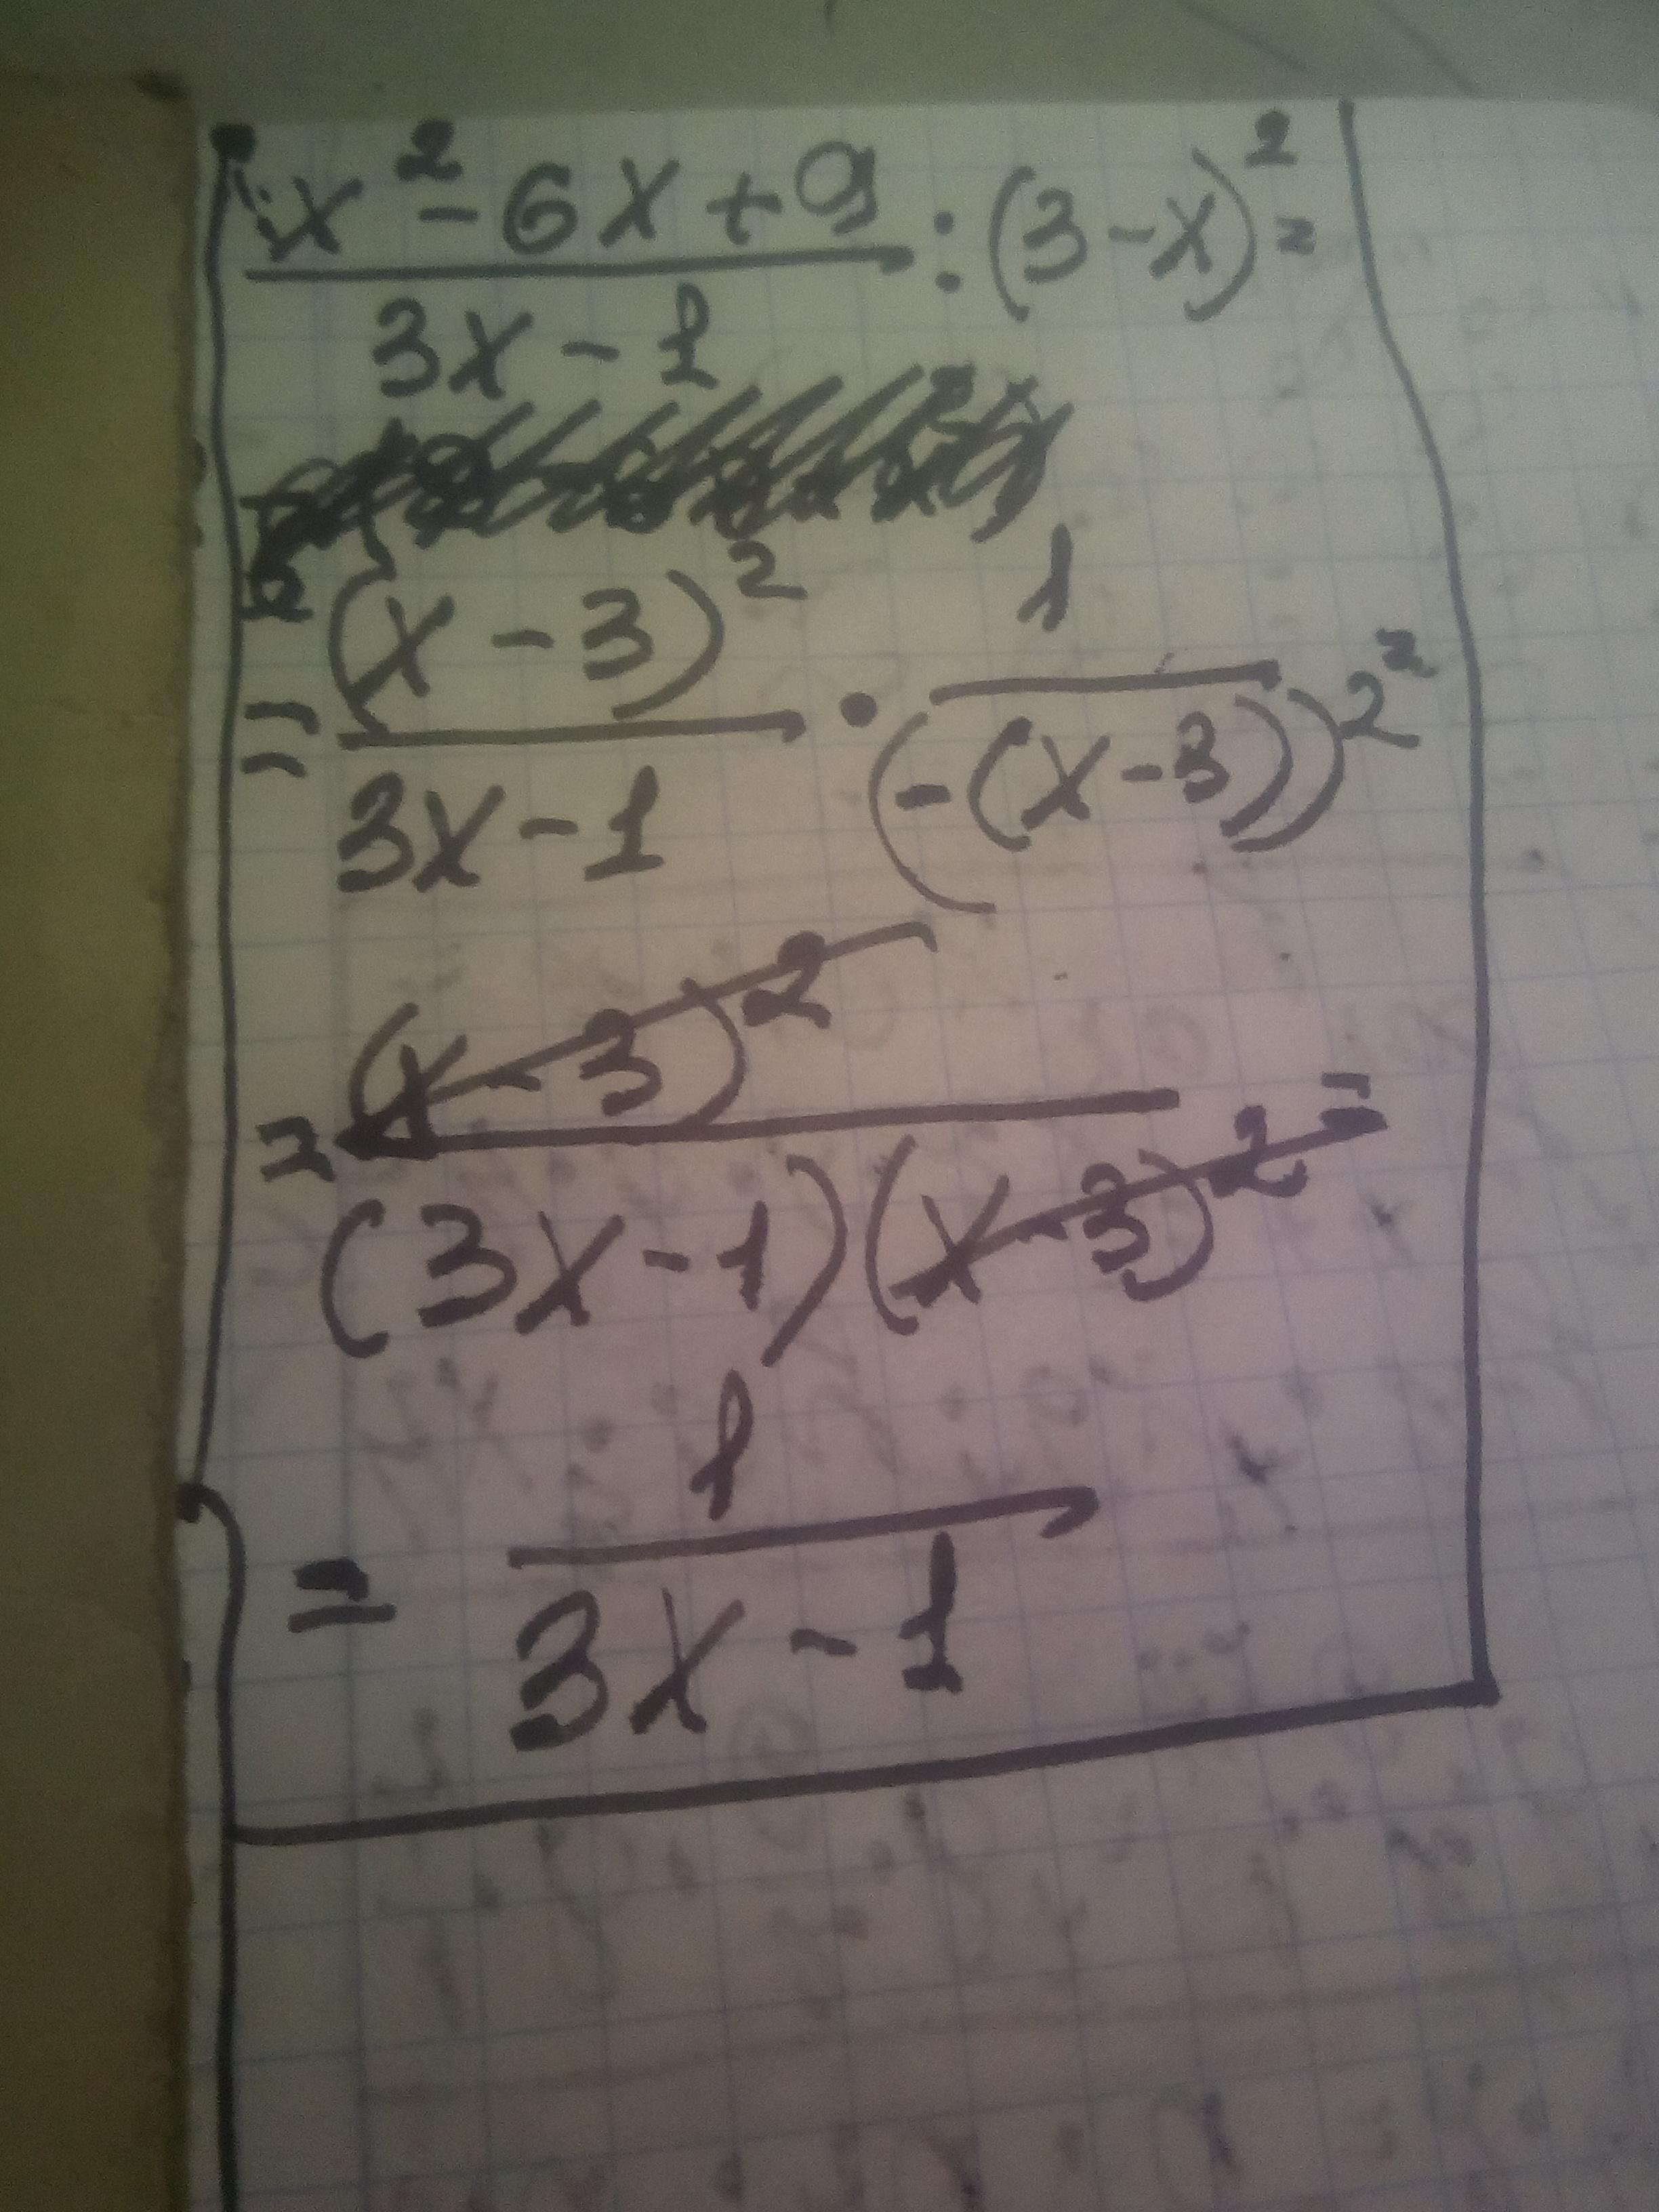 x² - 6x + 9 / 3x - 1 : (3 - x)² =
= (x - 3)² / 3x - 1 · 1 / (-(x - 3))² =
= (x - 3)² / (3x - 1)(x - 3)² =
= 1 / 3x - 1